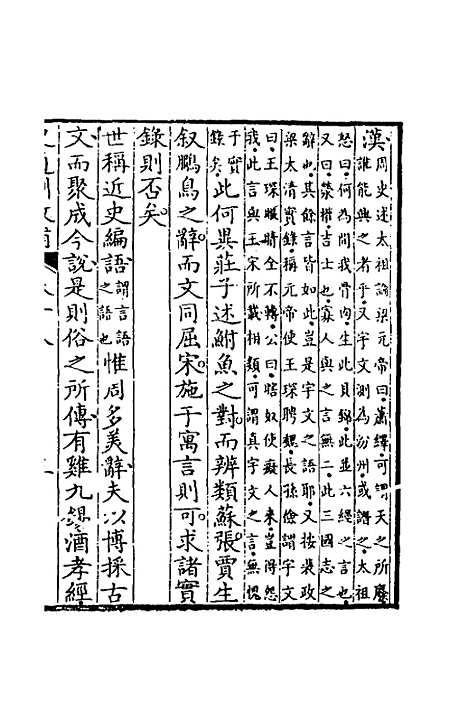 漢周史述太祖論梁元帝曰蕭繹可謂天之所廢
誰能興之者乎又宇文測為汾州或譖之太祖
怒曰何為間我骨肉生此貝錦此並六經之言也
又曰榮權吉士也寡人與之言無二此三國志之
辭也其餘言皆如此豈是宇文之語耶又按裴政
梁太清實錄稱元帝使王琛聘魏長孫儉謂宇文
曰王琛眼睛全不轉公曰瞎奴使癡人來豈得怨
我此言與王宋所載相類可謂真宇文之言無愧
于實錄矣此何異莊子述鮒魚之對而辨類蘇張賈生
叙鵬鳥之辭而文同屈宋施于寓言則可求諸實
錄則否矣
世稱近史編語謂言語之語也惟周多美辭夫以博採古
文而聚成今說是則俗之所傳有雞九錫酒孝經